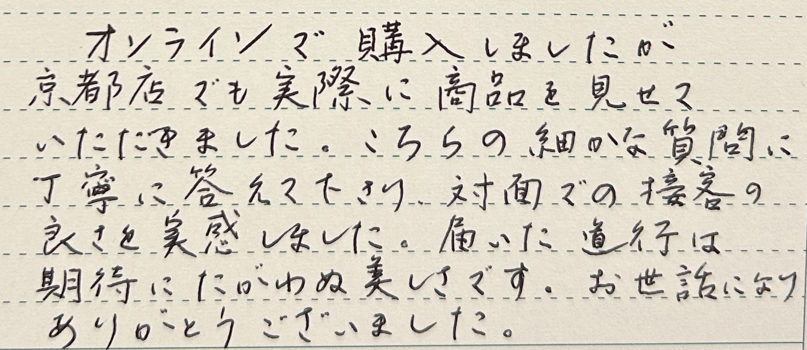 オンラインで購入しましたが
京都店でも実際に商品を見せて
いただきました。こちらの細かな質問に
丁寧に答えて下さり、対面での接客の
良さを実感しました。届いた道行は
期待にたがわぬ美しさです。お世話になり
ありがとうございました。